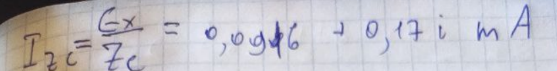 I_{zc} = \frac{Ex}{Zc} = 0,0946 + 0,17 i mA